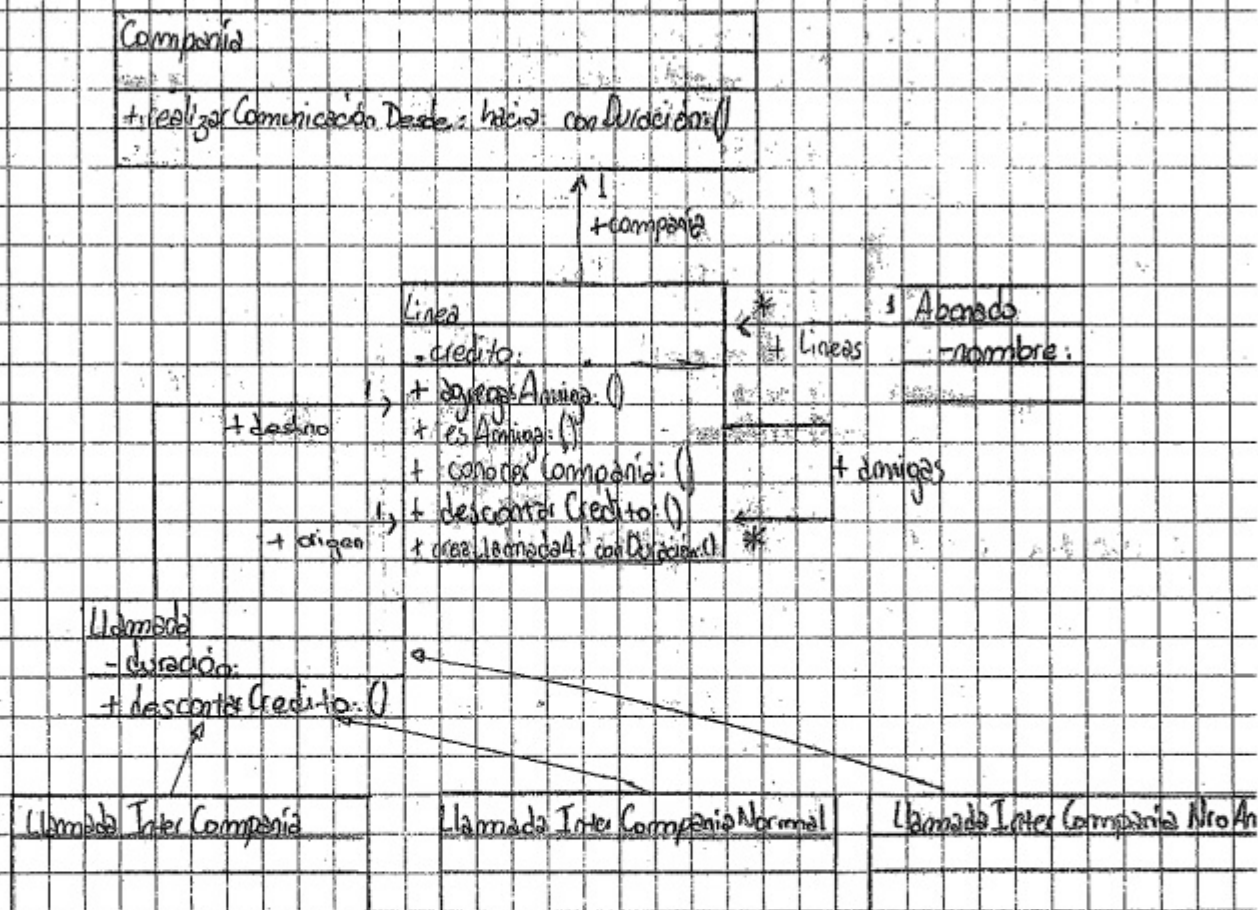 Compañía
+ realizar Comunicación Desde: hacia: con Duración:()
1
+ compañía
Linea
- credito:
+ agregarAmiga:()
+ esAmiga:()
+ conocer Compañia:()
+ descontar Crédito:()
+ crea Llamada A: con Duración:()
*
+ Lineas
1
Abonado
- nombre:
+ amigas
*
1
+ destino
1
+ origen
Llamada
- duración:
+ descontar Credito:()
Llamada Inter Compañia
Llamada Inter Compañia Normal
Llamada Inter Compañia Nro Am